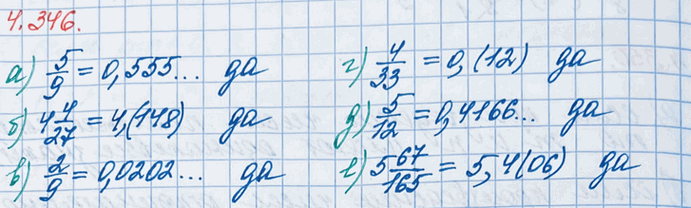 4.346.
а) 5/9 = 0,555... да
б) 4 4/27 = 4,(148) да
в) 2/9 = 0,0202... да
г) 4/33 = 0,(12) да
д) 5/12 = 0,4166... да
е) 5 67/165 = 5,4(06) да